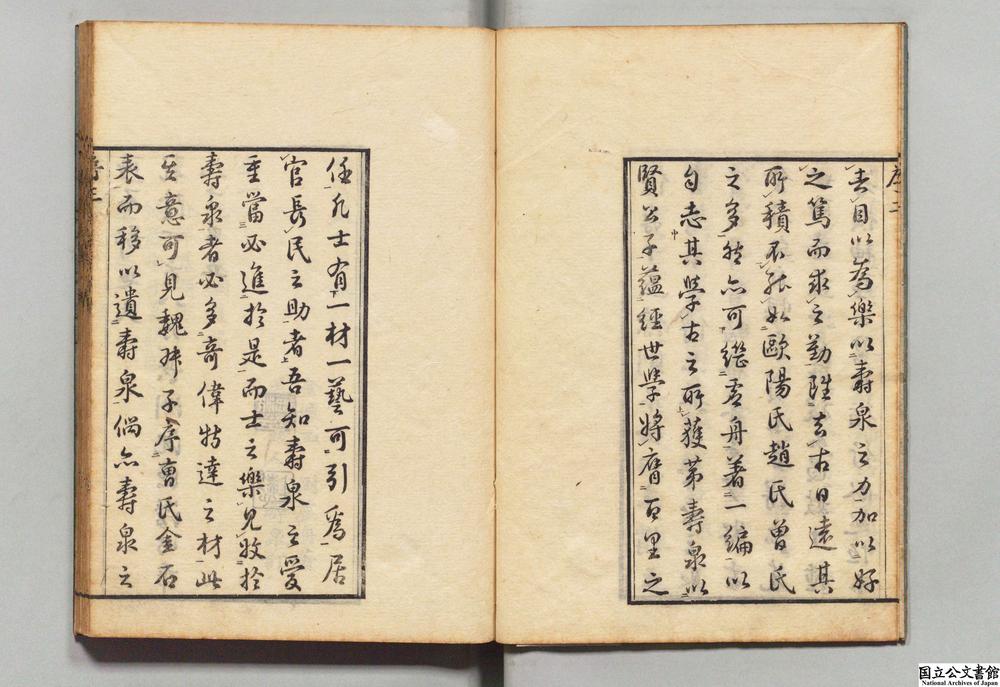 序二
去目以為樂以壽泉之力加以好
之篤而求之勤雖去古日遠其
所積不能如歐陽氏趙氏曾氏
之多然亦可繼虛舟著一編以
自志其學古之所獲第壽泉以
賢公子蘊經世學將膺百里之
任凡士有一材一藝可引為居
官長民之助者吾知壽泉之愛
重當必進於是而士之樂見收於
壽泉者必多奇偉特達之材此
意可見魏叔子序曹氏金石
表而移以遺壽泉倘亦壽泉之
序三
国立公文書館
National Archives of Japan